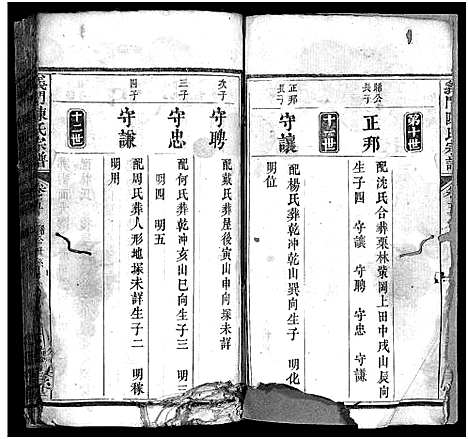 義門陳氏宗譜
第十世
縣公長子
正邦
配沈氏合葬栗林鞏岡上田中戌山辰向
生子四 守讓 守聘 守忠 守謙
十一世
正邦長子
守讓
配楊氏葬乾冲乾山巽向生子 明化
明位
次子
守聘
配戴氏葬屋後寅山申向塚未詳
三子
守忠
配何氏葬乾冲亥山巳向生子三 明三
明四 明五
四子
守謙
配周氏葬人形地塚未詳生子二 明稼
明用
十二世
義門陳氏宗譜